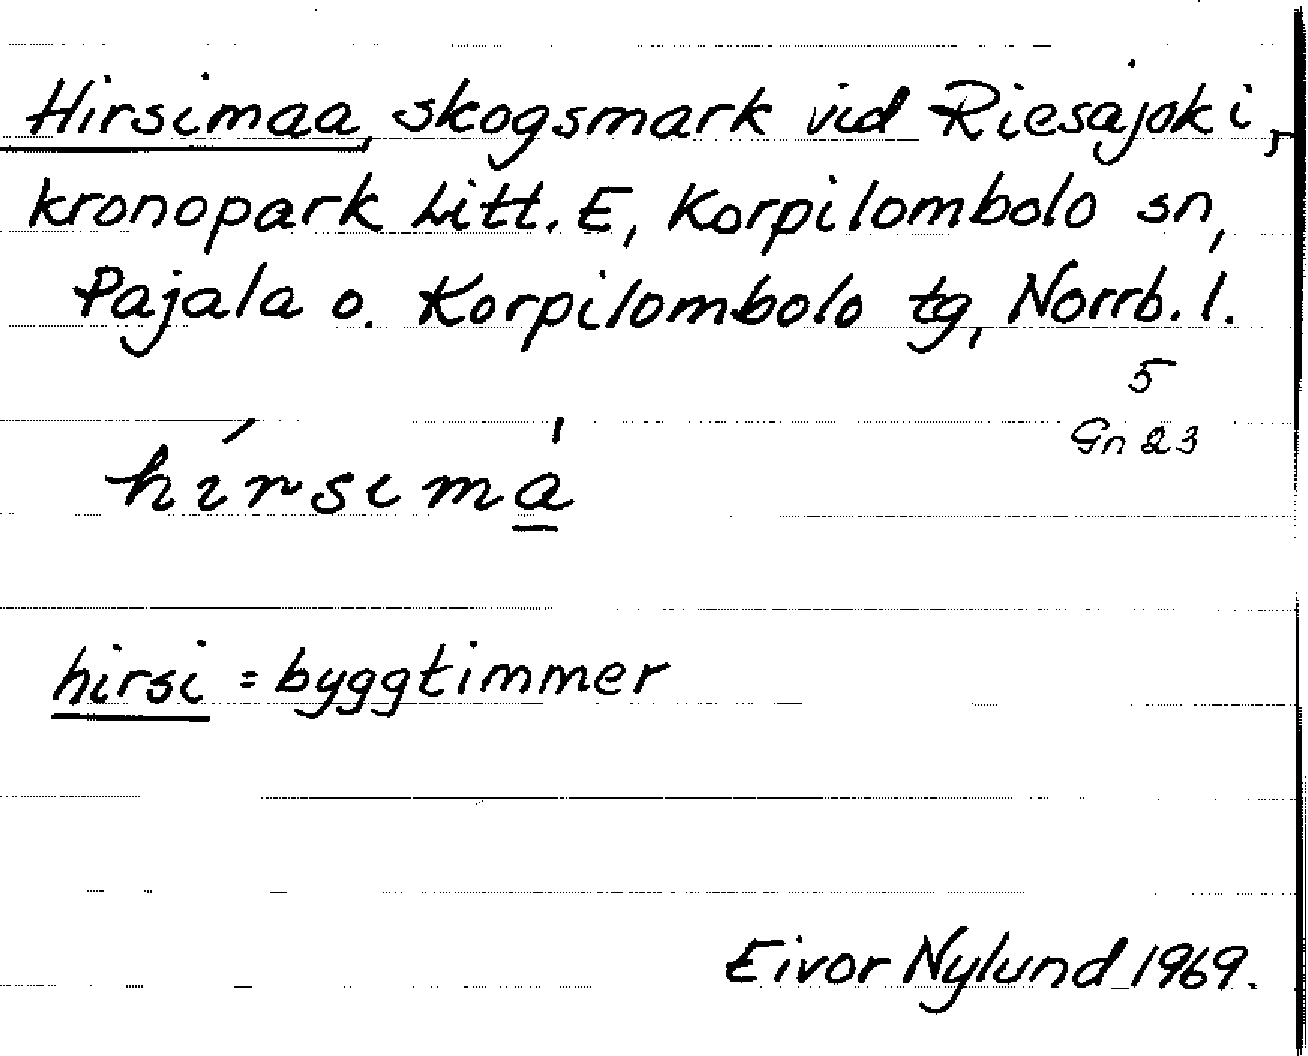 Hirsimaa, skogsmark vid Riesajoki,
kronopark Litt. E, Korpilombolo sn,
Pajala o. Korpilombolo tg, Norrb. l.
5
Gn 23
hírsima̲̍
hirsi = byggtimmer
Eivor Nylund 1969.